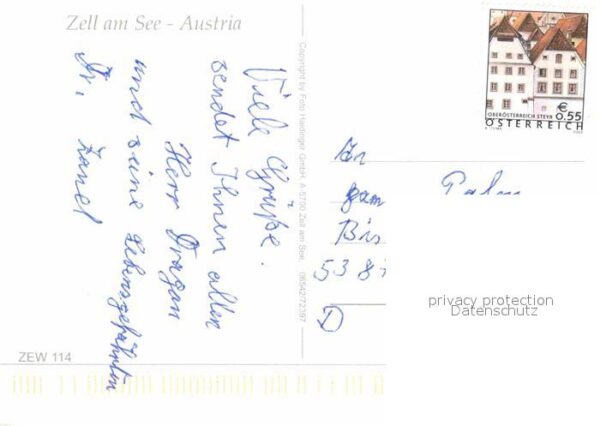 Zell am See - Austria
Viele Grüße.
sendet Ihnen allen
Herr Dragan
und seine Lebensgefährtin
Dr.
Copyright by Foto Haidinger GmbH, A-5700 Zell am See, 06542/72397
ZEW 114
€
0,55
OBERÖSTERREICH STEYR
ÖSTERREICH
An
Bis
D
privacy protection
Datenschutz